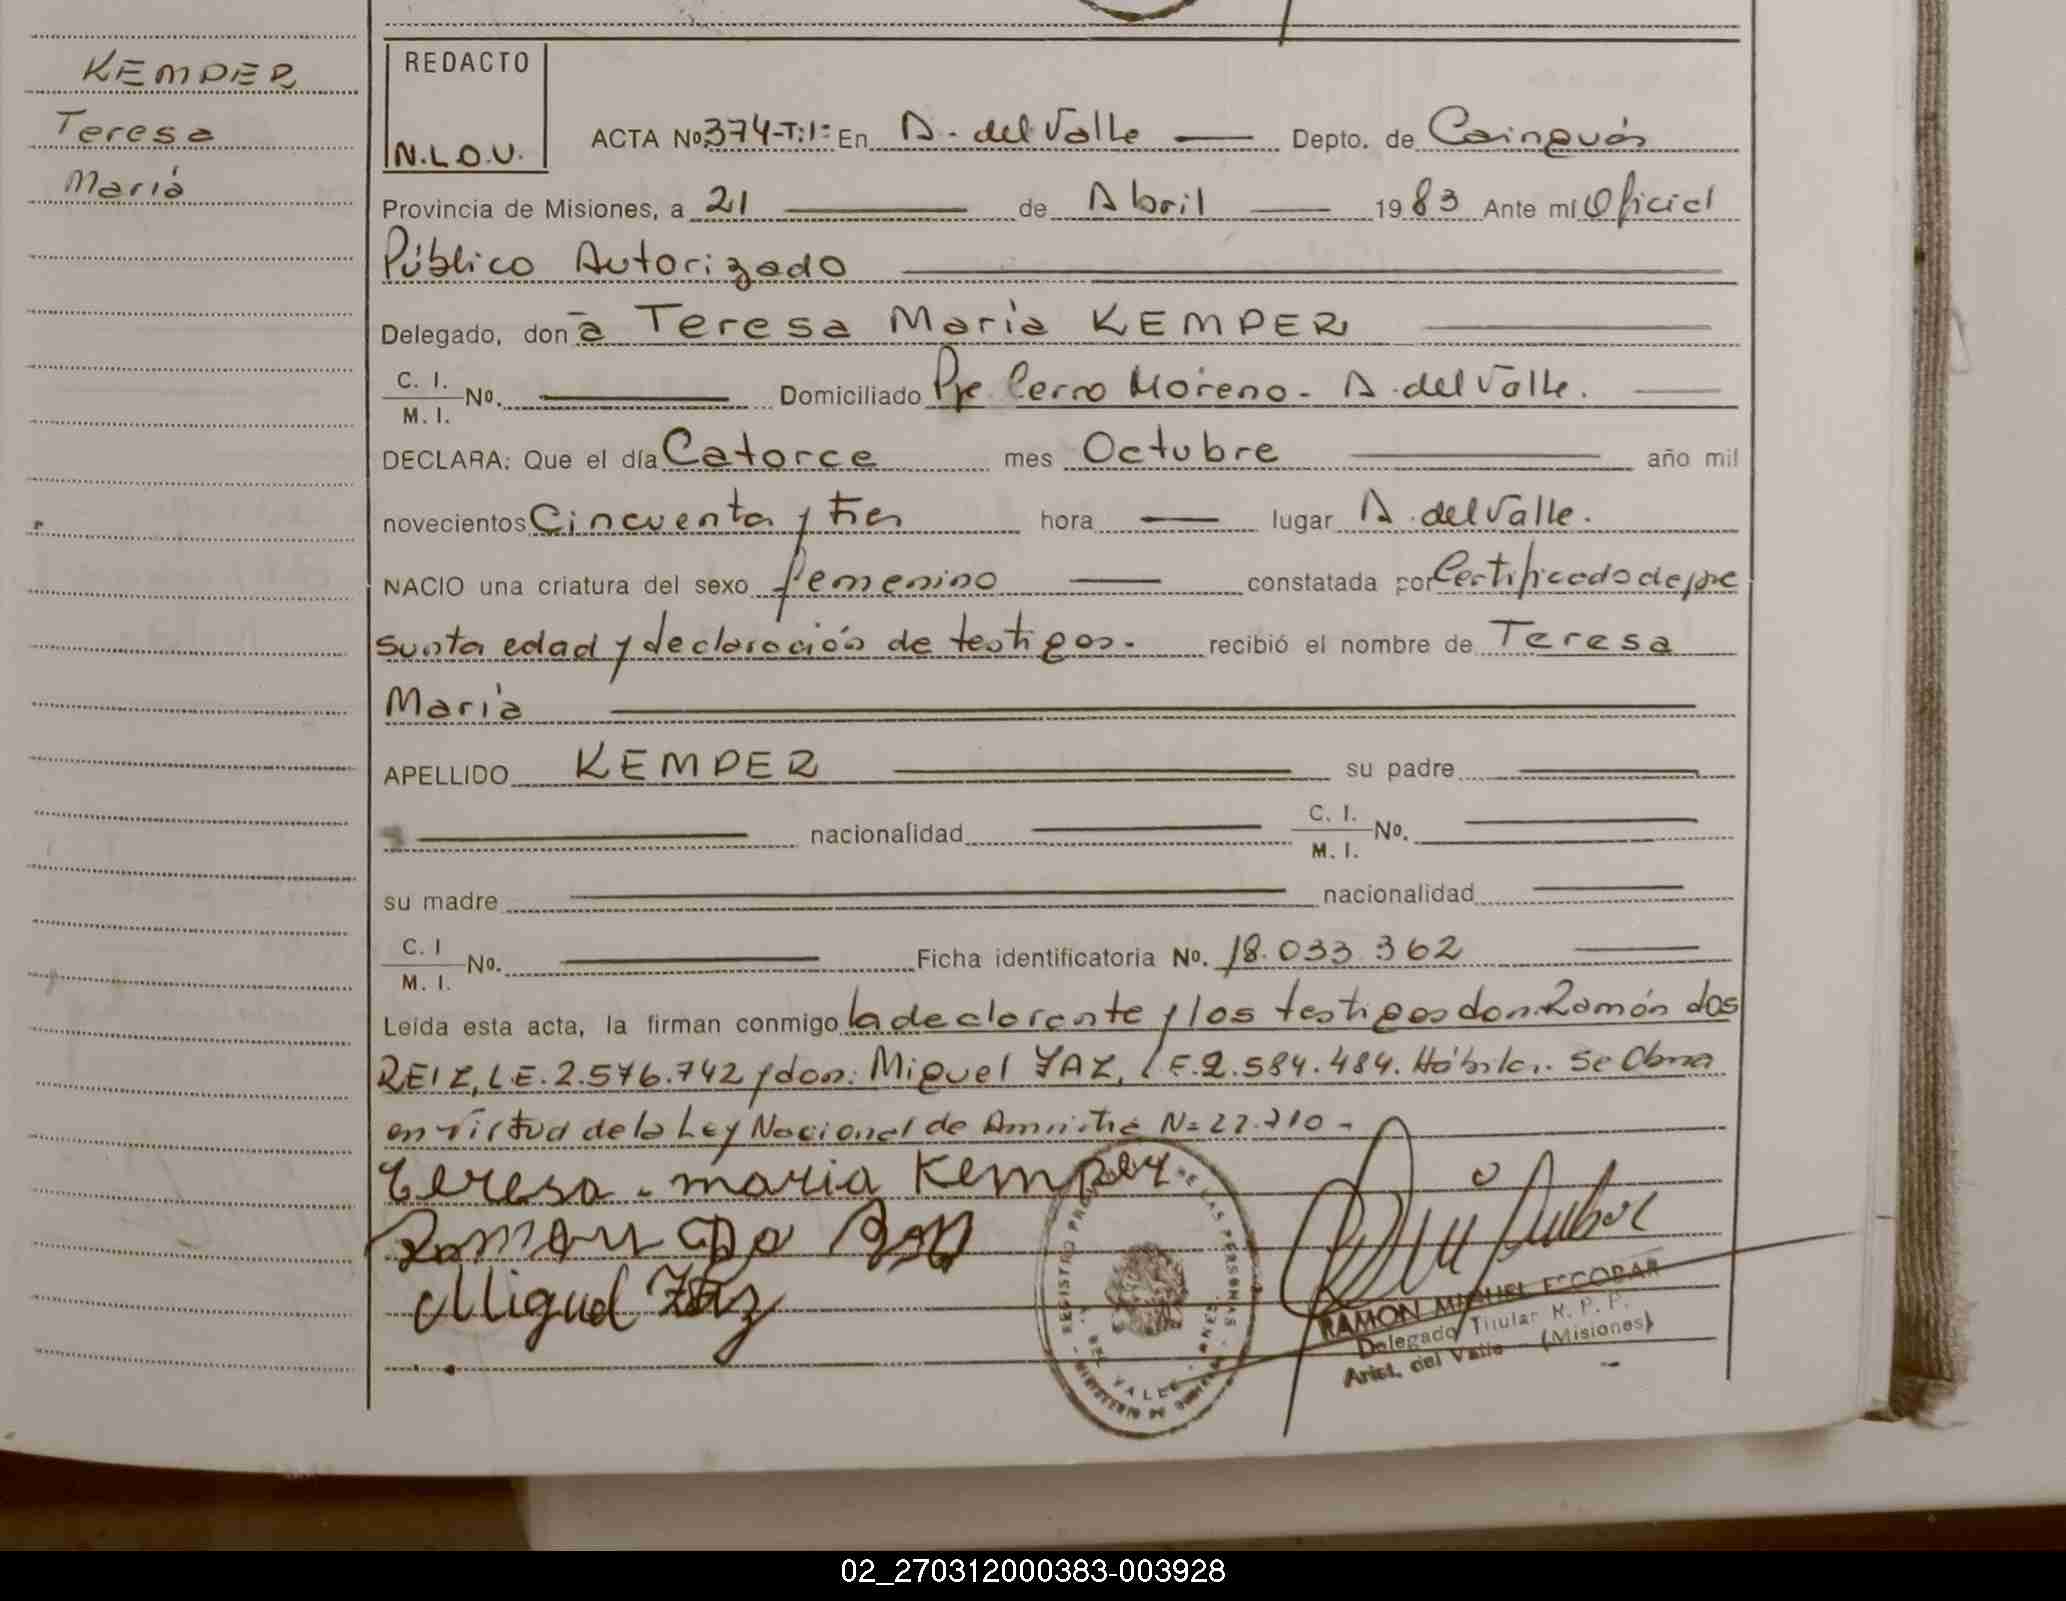 KEMPER
Teresa
María
REDACTO
N.L.O.V.
ACTA Nº 374-T:1= En A. del Valle Depto. de Cainguás
Provincia de Misiones, a 21 de Abril 1983 Ante mí Oficial
Público Autorizado
Delegado, don a Teresa María KEMPER
C. I.
M. I. Nº. Domiciliado Pje Cerro Moreno - A. del Valle.
DECLARA: Que el día Catorce mes Octubre año mil
novecientos Cincuenta y tres hora lugar A. del Valle.
NACIO una criatura del sexo femenino constatada por Certificado de pre
sunta edad y declaración de testigos. recibió el nombre de Teresa
María
APELLIDO KEMPER su padre
nacionalidad C. I.
M. I. Nº.
su madre nacionalidad
C. I
M. I. Nº. Ficha identificatoria Nº. 18.033.362
Leída esta acta, la firman conmigo la declarante y los testigos don: Ramón dos
REIZ, L.E. 2.576.742 y don: Miguel YAZ, L.E. 2.584.484. Hábiles. Se Obra
en virtud de la Ley Nacional de Amnistía Nº 22.710 -
teresa. maria Kemper
Ramon
Miguel
REGISTRO DE LAS PERSONAS
DEL VALLE
RAMON MIGUEL ESCOBAR
Delegado Titular R. P. P.
Arist. del Valle - (Misiones)
02_270312000383-003928